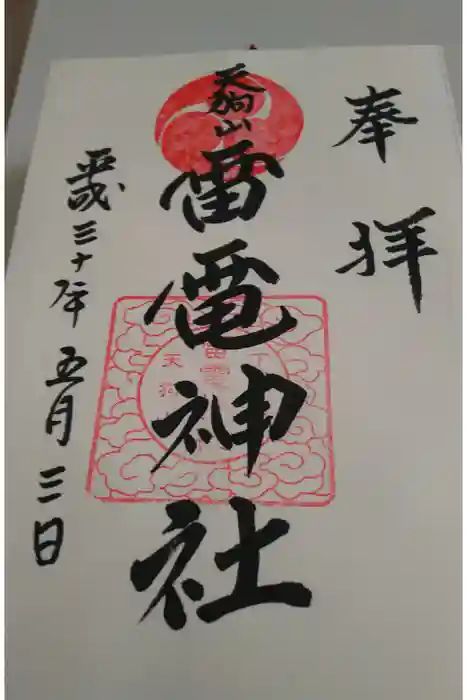 奉拝
天狗山
雷電神社
平成三十年五月三日